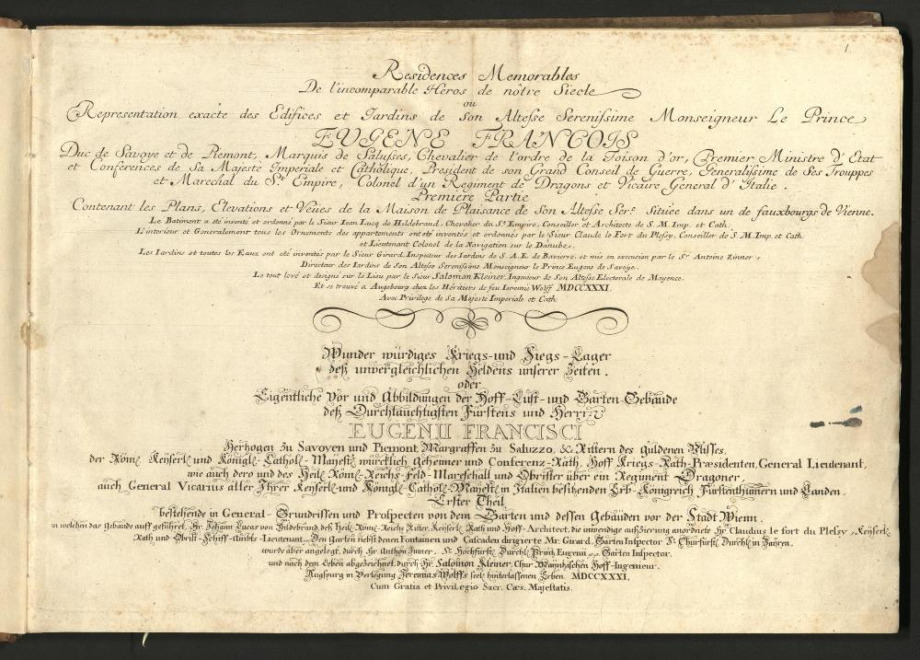 1
Residences Memorables
De l'incomparable Heros de nôtre Siecle
ou
Representation exacte des Edifices et Jardins de Son Altesse Serenissime Monseigneur Le Prince
EUGENE FRANCOIS
Duc de Savoye et de Piemont, Marquis de Salusses, Chevalier de l'ordre de la Toison d'or, Premier Ministre d'Etat
et Conferences de Sa Majeste Imperiale et Catholique, President de son Grand Conseil de Guerre, Generalissime de Ses Trouppes
et Marechal du St. Empire, Colonel d'un Regiment de Dragons et Vicaire General d'Italie.
Premiere Partie
Contenant les Plans, Elevations et Veües de la Maison de Plaisance de Son Altesse Sere. Située dans un de fauxbourgs de Vienne.
Le Batiment a eté inventé et ordonné par le Sieur Jean Lucq de Hildebrand, Chevalier du St. Empire, Conseiller et Architecte de S. M. Imp. et Cath.
L'interieur et Generalement tous les Ornements des appartements ont eté inventés et ordonnés par le Sieur Claude le Fort du Plessy, Conseiller de S. M. Imp. et Cath.
et Lieutenant Colonel de la Navigation sur le Danube.
Les Jardins et toutes les Eaux ont eté inventés par le Sieur Girard, Inspecteur des Jardins de S. A. E. de Baviere, et mis en execution par le Sr. Antoine Zinner,
Directeur des Jardins de Son Altesse Serenissime Monseigneur le Prince Eugene de Savoye.
Le tout levé et designé sur le Lieu par le Sieur Salomon Kleiner, Ingenieur de Son Altesse Electorale de Mayence.
Et se trouve a Augsbourg chez les Heritiers de feu Jeremie Wolff MDCCXXXI.
Avec Privilege de Sa Majeste Imperiale et Cath.
Wunder würdiges Kriegs-und Siegs-Lager
deß unvergleichlichen Heldens unserer Zeiten.
oder
Eigentliche Vor und Abbildungen der Hoff-Lust-und Garten-Gebäude
deß Durchläuchtigsten Fürstens und Herrn
EUGENII FRANCISCI
Hertzogen zu Savoyen und Piemont, Margraffen zu Saluzzo, &c. Rittern des guldenen Flüsses,
der Röm. Keyserl. und Königl. Cathol. Mayest. würcklich Geheimer und Conferenz-Rath, Hoff Kriegs-Rath-Præsidenten, General Lieutenant,
wie auch dero und des Heil. Röm. Reichs-Feld-Marschall und Obrister über ein Regiment Dragoner,
auch General Vicarius aller Ihrer Keyserl. und Königl. Cathol. Mayest. in Italien besitzenden Erb-Königreich Fürstenthümern und Landen.
Erster Theil,
bestehende in General-Grundrissen und Prospecten von dem Garten und dessen Gebäuden vor der Stadt Wienn.
in welchen das Gebäude auffgeführet, Hr. Johann Lucas von Hildebrand, deß Heil. Röm. Reichs Ritter, Keyserl. Rath und Hoff-Architect, die inwendige außzierung anordnete Hr. Claudius le fort du Plessy, Keyserl.
Rath und Obrist-Schiff-Lieutenant. Den Garten nebst denen Fontainen und Cascaden dirigierte Mr. Girard, Garten Inspector Sr. Churfürstl. Durchl. in Bayren.
wurde aber angelegt, durch Hr. Anthon Zinner, Sr. Hochfürstl. Durchl. Printz Eugenii Garten Inspector.
und nach dem Leben abgezeichnet, durch Hr. Salomon Kleiner, Chur Mayntzischen Hoff-Ingenieur.
Augspurg in Verlegung Jeremias Wolffs seel. hinterlassenen Erben. MDCCXXXI.
Cum Gratia et Privilegio Sacr. Cæs. Majestatis.